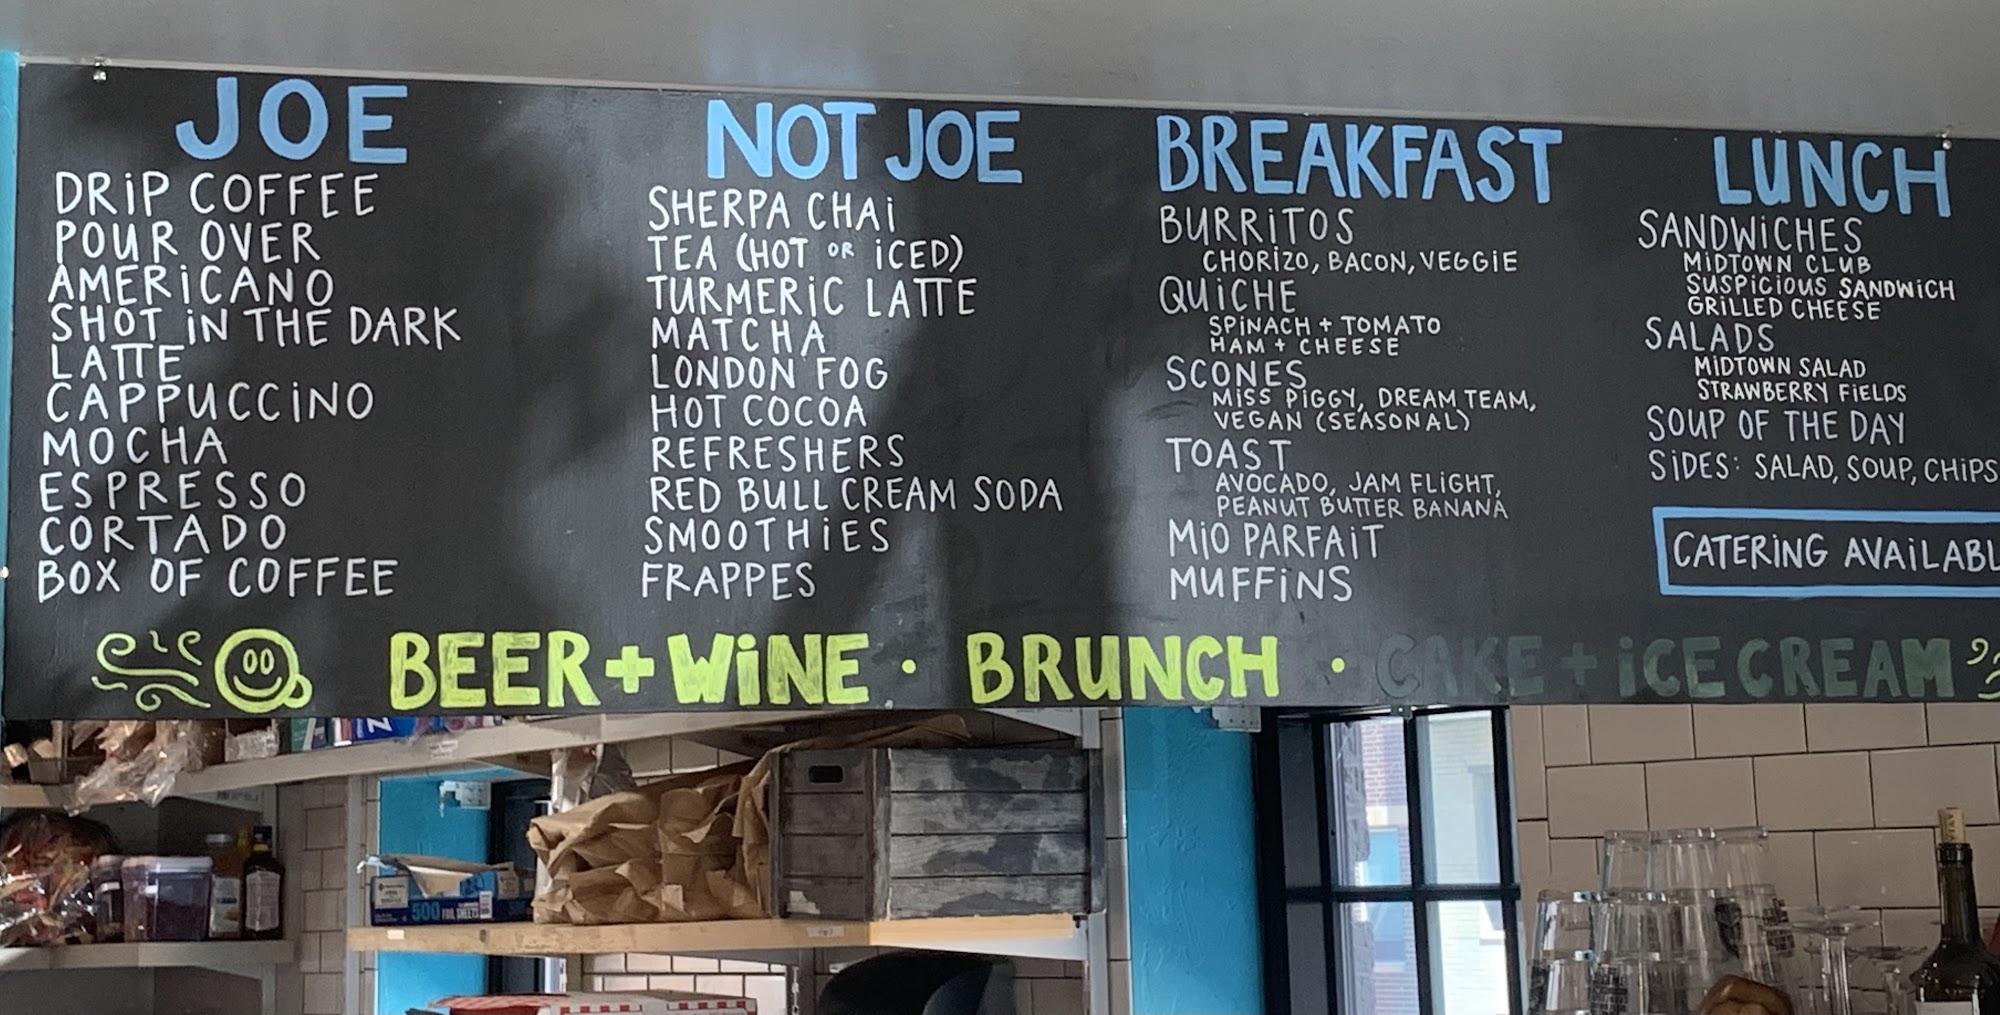 JOE
DRiP COFFEE
POUR OVER
AMERiCANO
SHOT iN THE DARK
LATTE
CAPPUCCiNO
MOCHA
ESPRESSO
CORTADO
BOX OF COFFEE
NOT JOE
SHERPA CHAi
TEA (HOT OR iCED)
TURMERiC LATTE
MATCHA
LONDON FOG
HOT COCOA
REFRESHERS
RED BULL CREAM SODA
SMOOTHiES
FRAPPES
BREAKFAST
BURRiTOS
CHORiZO, BACON, VEGGiE
QUiCHE
SPiNACH + TOMATO
HAM + CHEESE
SCONES
MiSS PiGGY, DREAM TEAM,
VEGAN (SEASONAL)
TOAST
AVOCADO, JAM FLiGHT,
PEANUT BUTTER BANANA
MiO PARFAiT
MUFFiNS
LUNCH
SANDWiCHES
MiDTOWN CLUB
SUSPiCiOUS SANDWiCH
GRiLLED CHEESE
SALADS
MiDTOWN SALAD
STRAWBERRY FiELDS
SOUP OF THE DAY
SiDES: SALAD, SOUP, CHiPS
CATERiNG AVAiLABL
BEER + WiNE · BRUNCH · CAKE + iCE CREAM
500 FOIL SHEETS